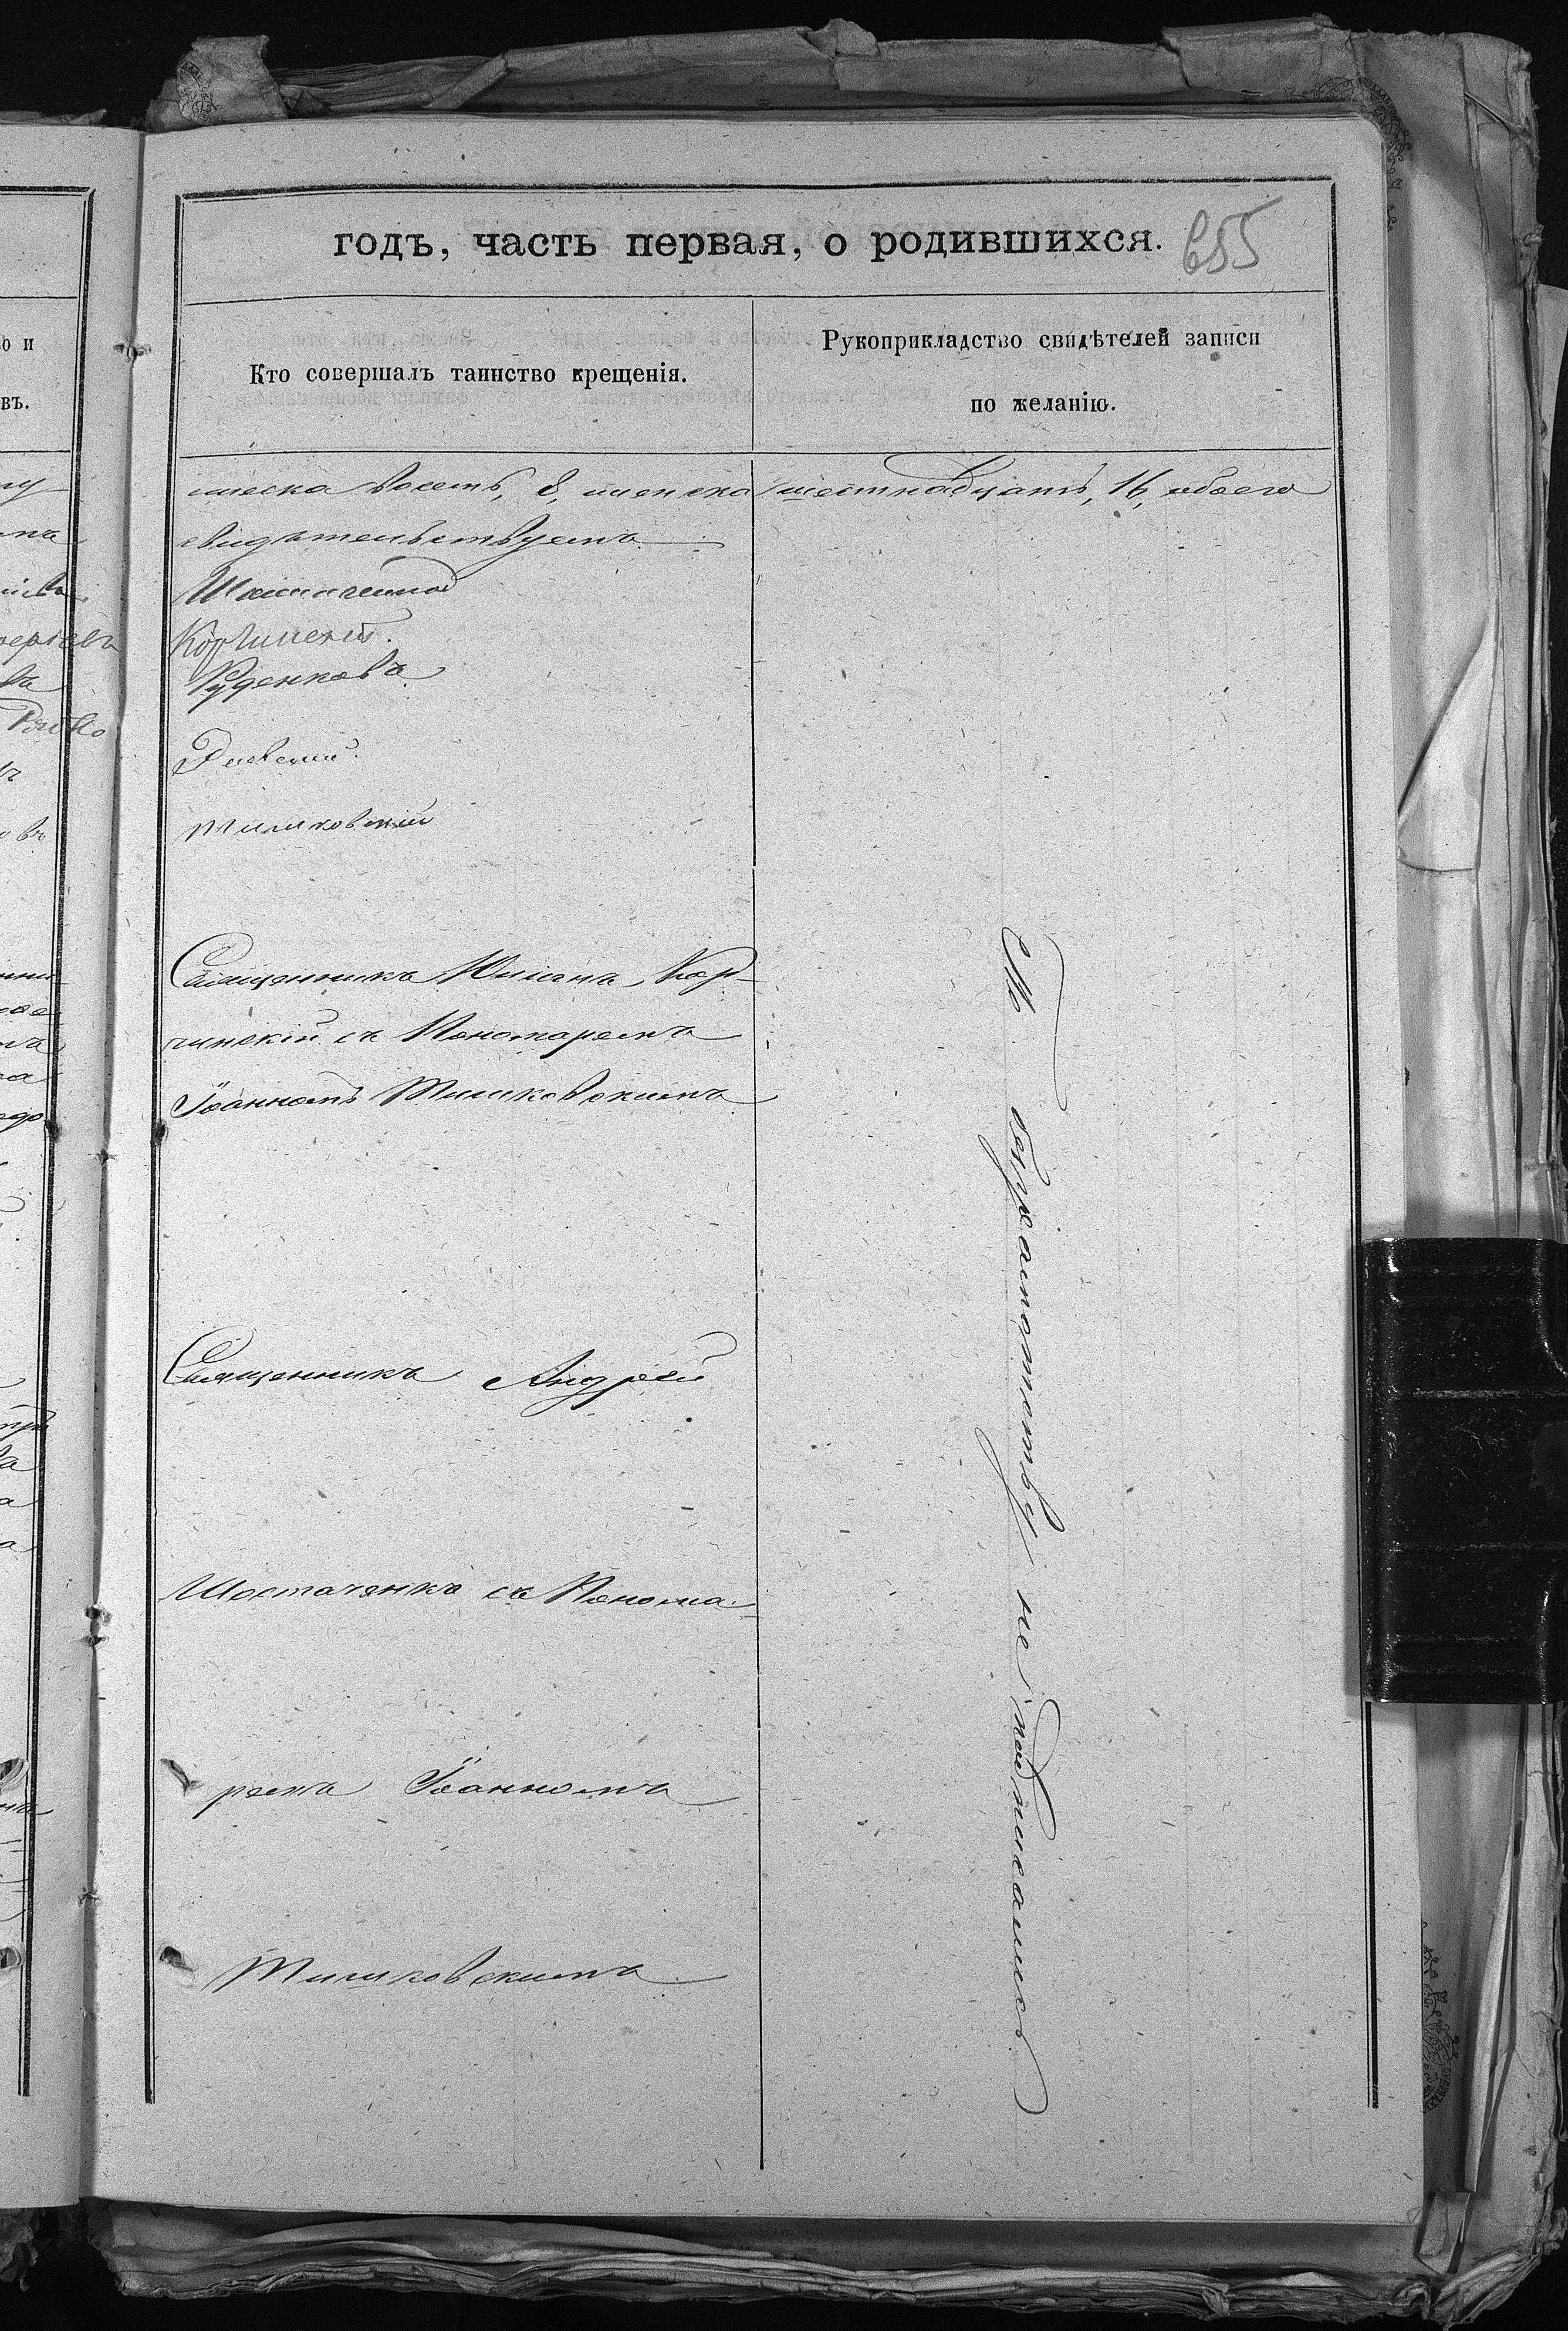 годъ, часть первая, о родившихся. 655
Кто совершалъ таинство крещенія.
Рукоприкладство свидѣтелей записи
по желанію.
восемь, 8, женска шестнадцать, 16, обоего
свидѣтельствуемъ
Корчинскій.
Руденковъ
Тишковскій
Священникъ Юліанъ Кор-
чинскій съ Пономаремъ
Іоанномъ Тишковскимъ
Священникъ Андрей
Шостаченко съ Понома-
ремъ Іоанномъ
Тишковскимъ
По безграмотству не подписались